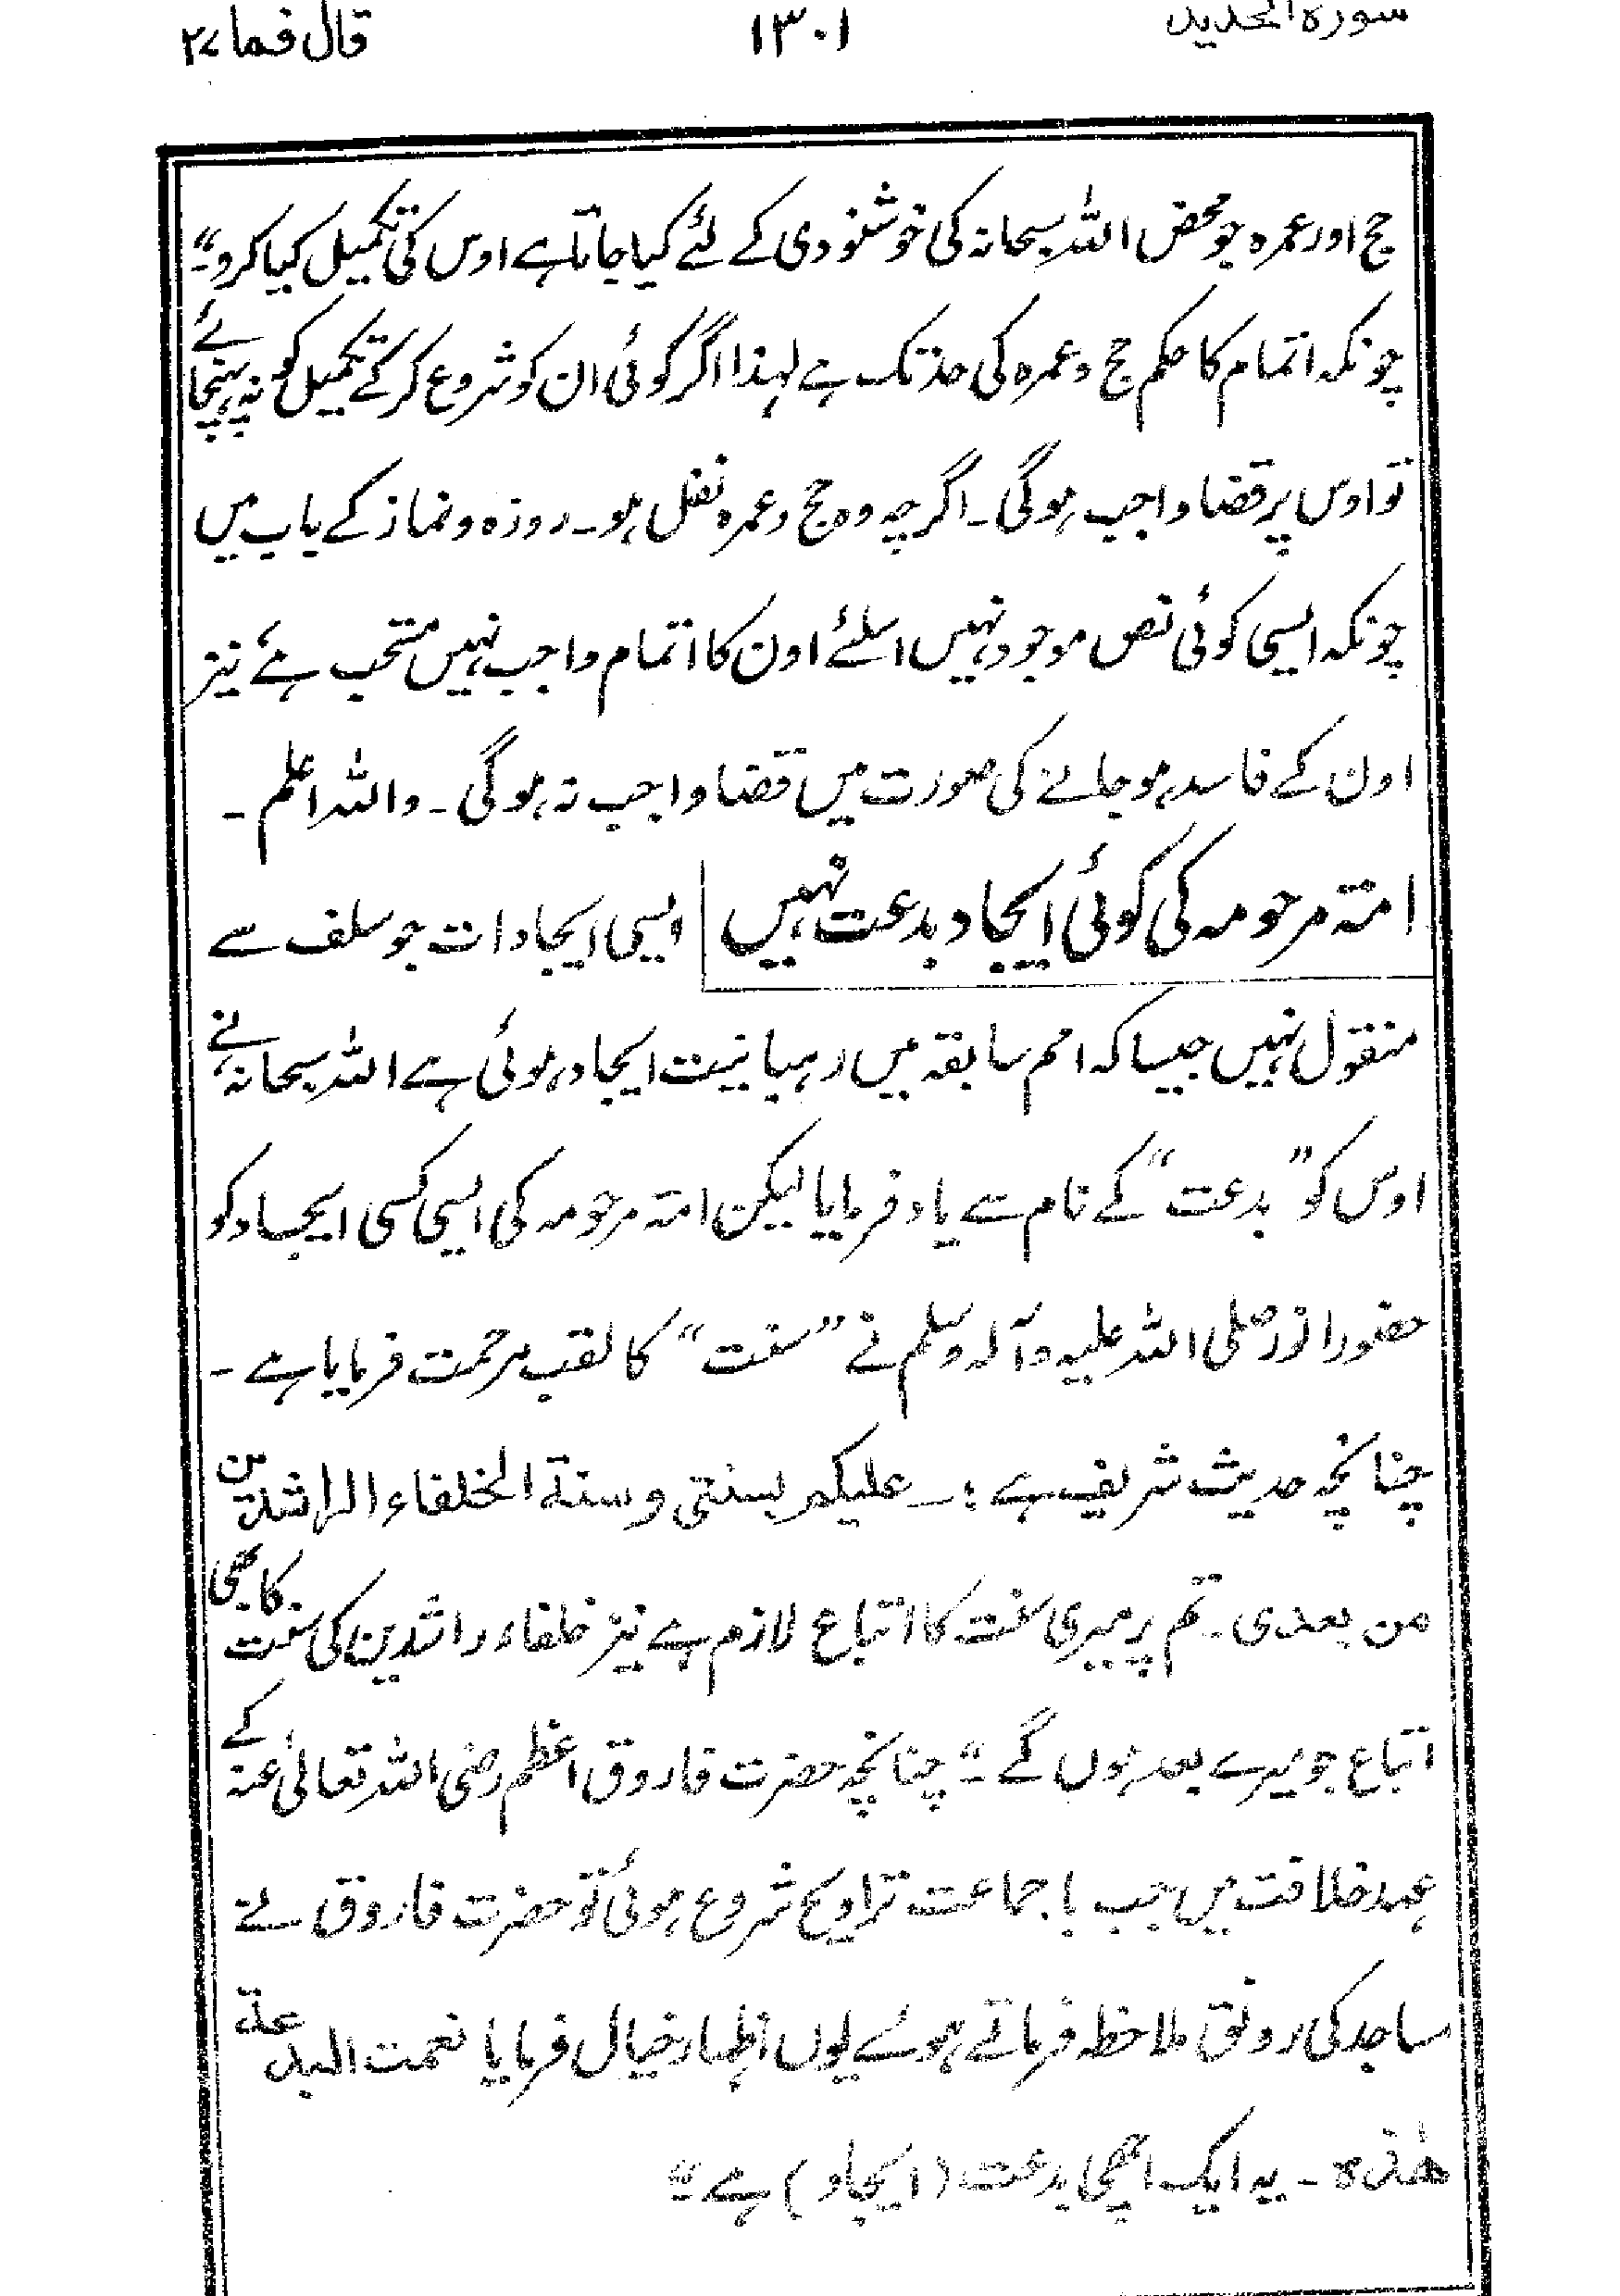 سورہ الحدید ۱۳۰۱ قال فما ۲۷
حج اور عمرہ جو محض اللہ سبحانہ کی خوشنودی کے لئے کیا جاتا ہے اوس کی تکمیل کیا کرو"۔
چونکہ اتمام کا حکم حج و عمرہ کی حد تک ہے لہذا اگر کوئی ان کو شروع کر کے تکمیل کو نہ پہنچائے
تو اوس پر قضا واجب ہوگی۔ اگرچہ وہ حج و عمرہ نفل ہو۔ روزہ و نماز کے باب میں
چونکہ ایسی کوئی نص موجود نہیں اسلئے اون کا اتمام واجب نہیں مستحب ہے نیز
اون کے فاسد ہو جانے کی صورت میں قضا واجب نہ ہوگی۔ واللہ اعلم۔
امتہ مرحومہ کی کوئی ایجاد بدعت نہیں ویسی ایجادات جو سلف سے
منقول نہیں جیسا کہ امم سابقہ میں رہبانیت ایجاد ہوئی ہے اللہ سبحانہ نے
اوس کو "بدعت" کے نام سے یاد فرمایا لیکن امتہ مرحومہ کی ایسی کسی ایجاد کو
حضور انور صلی اللہ علیہ وآلہ وسلم نے "سنت" کا لقب مرحمت فرمایا ہے۔
چنانچہ حدیث شریف ہے :۔ علیکم بسنتی و سنة الخلفاء الراشدین
من بعدی۔ تم پر میری سنت کا اتباع لازم ہے نیز خلفاء راشدین کی سنت کا بھی
اتباع جو میرے بعد ہوں گے"۔ چنانچہ حضرت فاروق اعظم رضی اللہ تعالیٰ عنہ کے
عہد خلافت میں جب با جماعت تراویح شروع ہوئی تو حضرت فاروق نے
مساجد کی رونق ملاحظہ فرماتے ہوئے یوں اظہار خیال فرمایا نعمت البدعة
ھٰذہ ۔ یہ ایک اچھی بدعت (ایجاد) ہے"۔